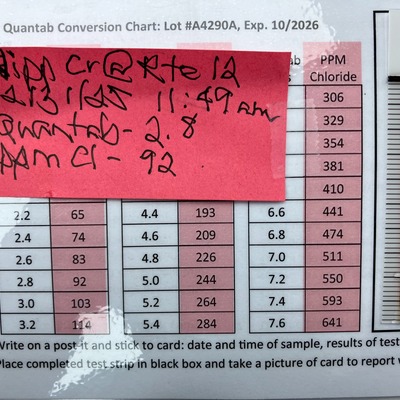 Quantab Conversion Chart: Lot #A4290A, Exp. 10/2026
Cr@Rte 12
11:49 am
Quantab - 2.8
PPM Cl - 92
PPM
Chloride
306
329
354
381
410
2.2 65 4.4 193 6.6 441
2.4 74 4.6 209 6.8 474
2.6 83 4.8 226 7.0 511
2.8 92 5.0 244 7.2 550
3.0 103 5.2 264 7.4 593
3.2 114 5.4 284 7.6 641
Write on a post it and stick to card: date and time of sample, results of test
Place completed test strip in black box and take a picture of card to report